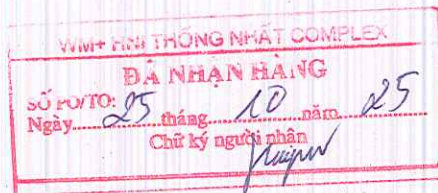 WM+ HNI THỐNG NHẤT COMPLEX
ĐÃ NHẬN HÀNG
SỐ PO/TO:
Ngày 25 tháng 10 năm 25
Chữ ký người nhận